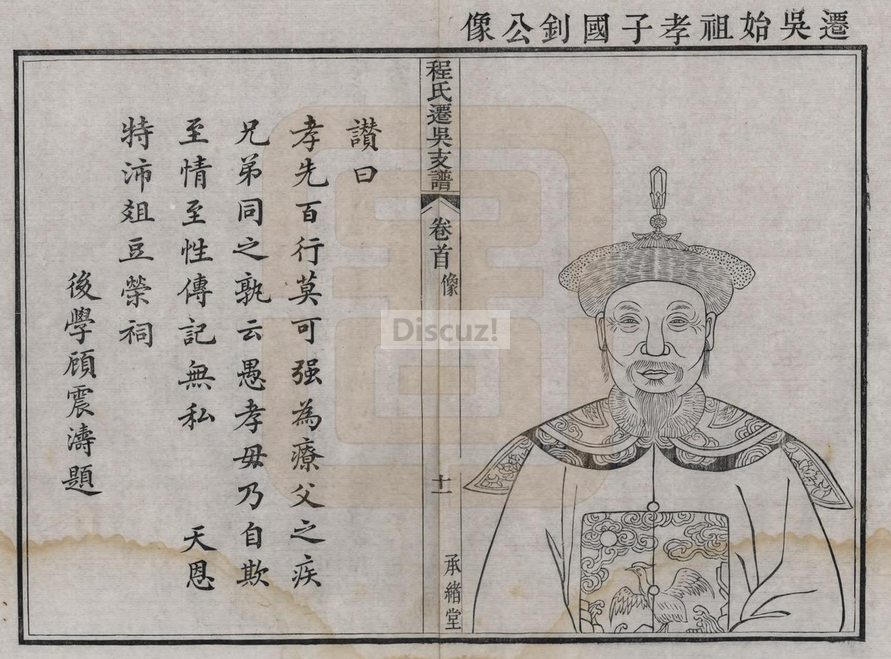 遷吳始祖孝子國釗公像
程氏遷吳支譜
卷首
像
十一
承緒堂
讚曰
孝先百行莫可强為療父之疾
兄弟同之孰云愚孝毋乃自欺
至情至性傳記無私 天恩
特沛俎豆榮祠
後學顧震濤題
Discuz!